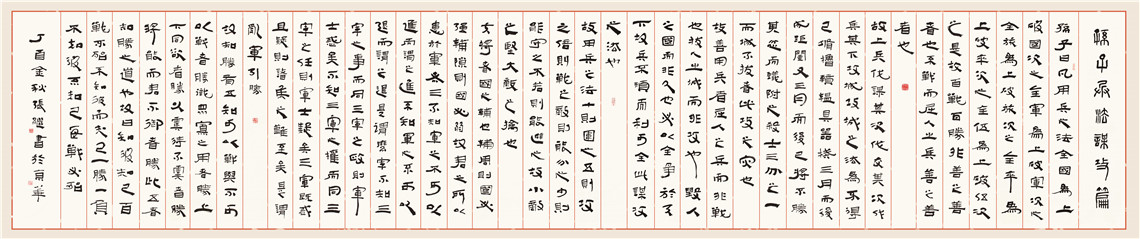 孫子兵法謀攻篇
孫子曰凡用兵之法全國為上
破國次之全軍為上破軍次之
全旅為上破旅次之全卒為
上破卒次之全伍為上破伍次
之是故百戰百勝非善之善
者也不戰而屈人之兵善之善
者也
故上兵伐謀其次伐交其次伐
兵其下攻城攻城之法為不得
已修櫓轒轀具器械三月而後
成距闉又三月而後已將不勝
其忿而蟻附之殺士三分之一
而城不拔者此攻之災也
故善用兵者屈人之兵而非戰
也拔人之城而非攻也毀人
之國而非久也必以全爭於天
下故兵不頓而利可全此謀攻
之法也
故用兵之法十則圍之五則攻
之倍則戰之敵則能分之少則
能守之不若則能避之故小敵
之堅大敵之擒也
夫將者國之輔也輔周則國必
強輔隙則國必弱故君之所以
患於軍者三不知軍之不可以
進而謂之進不知軍之不可以
退而謂之退是謂縻軍不知三
軍之事而同三軍之政則軍
士惑矣不知三軍之權而同三
軍之任則軍士疑矣三軍既惑
且疑則諸侯之難至矣是謂
亂軍引勝
故知勝有五知可以戰與不可
以戰者勝識眾寡之用者勝上
下同欲者勝以虞待不虞者勝
將能而君不御者勝此五者
知勝之道也故曰知彼知己百
戰不殆不知彼而知己一勝一負
不知彼不知己每戰必殆
丁酉金秋張書於京華